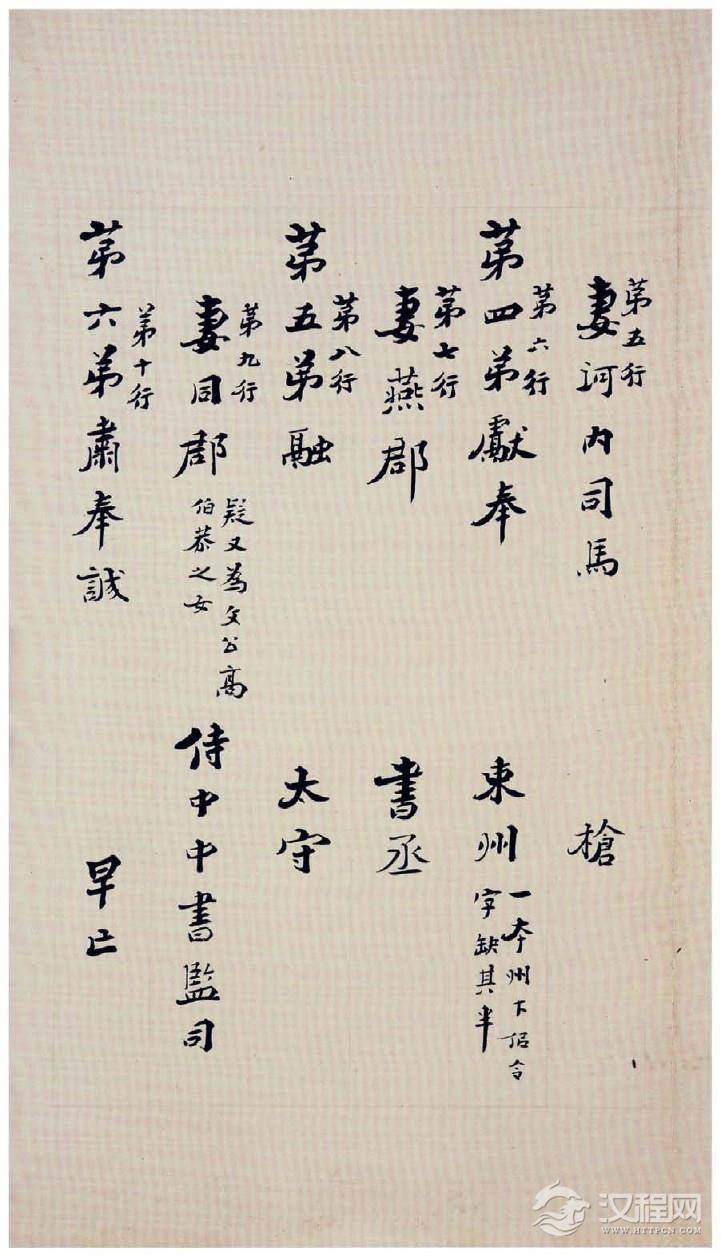 第五行
妻河内司馬 槍
第六行
第四弟獻奉 東州
一本州下令
字缺其半
第七行
妻燕郡 書丞
第八行
第五弟融 太守
第九行
妻同郡
疑又為文公高
伯恭之女
侍中中書監司
第十行
第六弟肅奉誠 早亡
汉程网
WWW.HTTPCN.COM